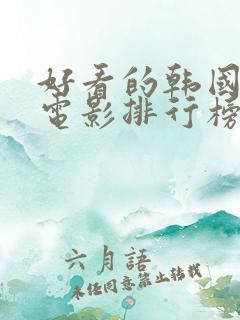 好看的韩國
電影排行榜
六月語
未经同意禁止转载